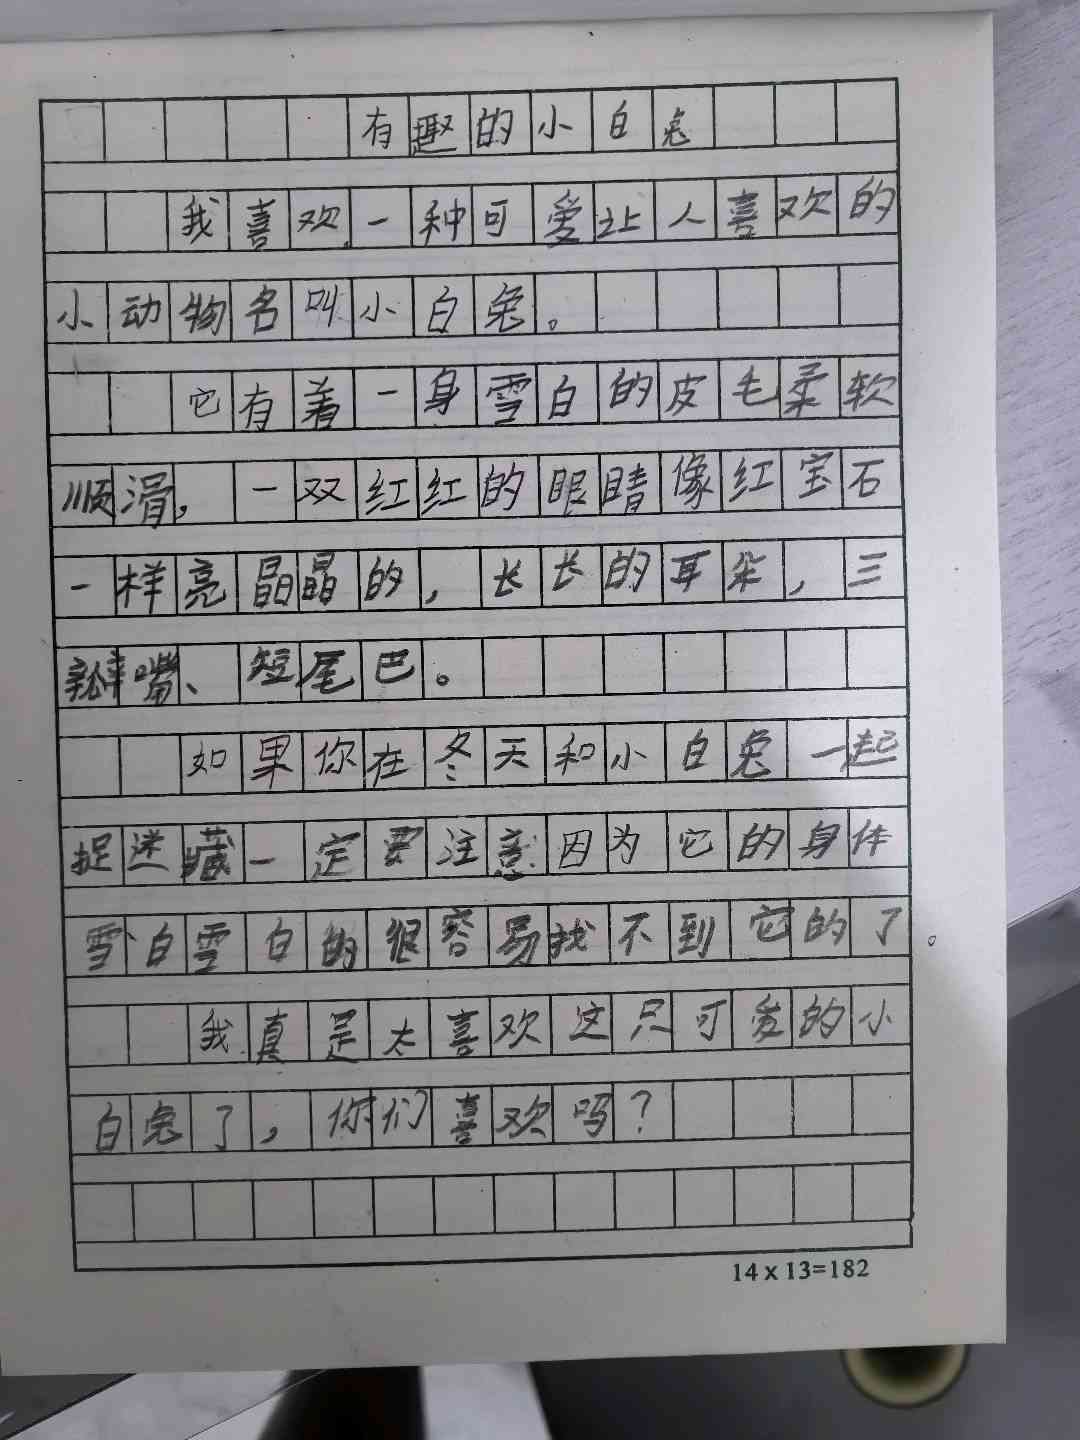 有趣的小白兔
我喜欢一种可爱让人喜欢的
小动物名叫小白兔。
它有着一身雪白的皮毛柔软
顺滑，一双红红的眼睛像红宝石
一样亮晶晶的，长长的耳朵，三
瓣嘴、短尾巴。
如果你在冬天和小白兔一起
捉迷藏一定要注意因为它的身体
雪白雪白的很容易找不到它的了。
我真是太喜欢这只可爱的小
白兔了，你们喜欢吗？
14x13=182